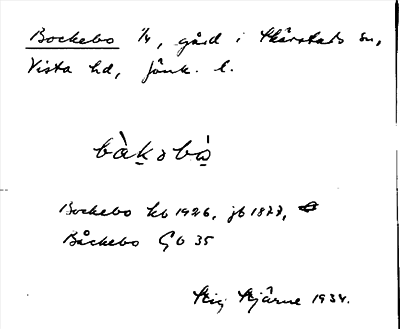 Bockebo 1/4, gård i Skärstads sn,
Vista hd, Jönk. l.
bàkobò
Bockebo kb 1926, jb 1877,
Båckebo GO 35
Stig Stjärne 1934.